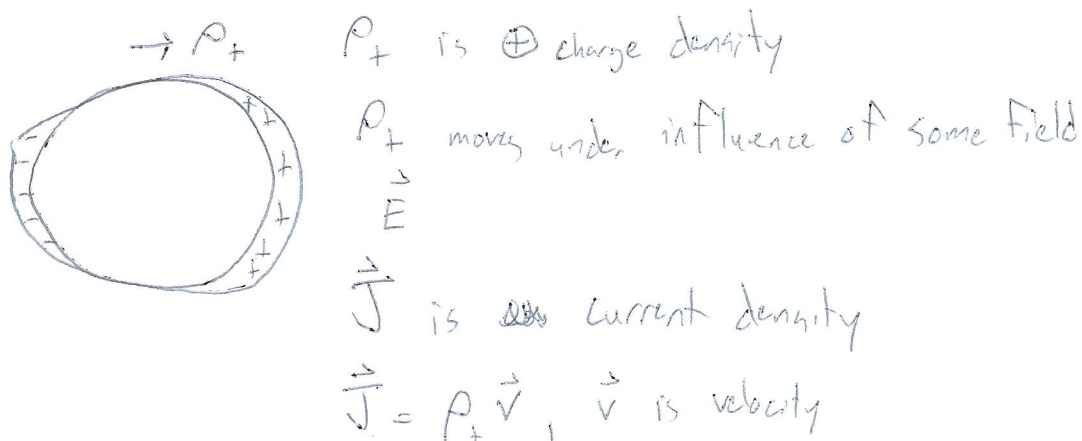 → ρ₊
ρ₊ is ⊕ charge density
ρ₊ moves under influence of some field
E⃗
J⃗ is current density
J⃗ = ρ₊ v⃗, v⃗ is velocity